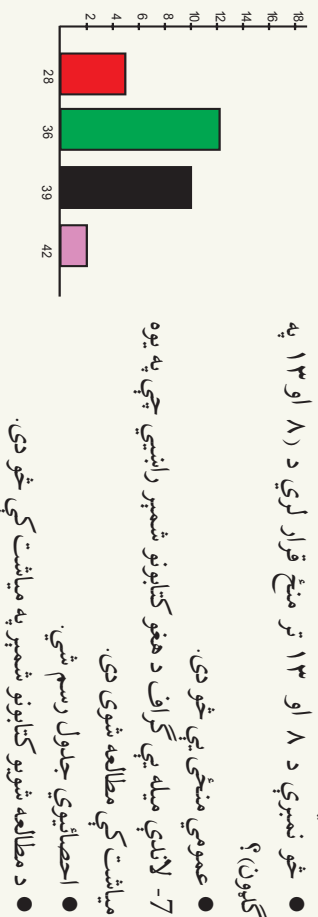 ● څو نمبرې د ۸ او ۱۳ تر منځ قرار لري د (۸ او ۱۳ په
گډون)؟
● عمومي منځنۍ يې څو دی.
7- لاندې ميله يي گراف د هغو کتابونو شمېر راښيي چې په يوه
مياشت کې مطالعه شوی دی.
● احصائيوي جدول رسم شي.
● د مطالعه شويو کتابونو شمېر په مياشت کې څو دی.
18
16
14
12
10
8
6
4
2
28 36 39 42